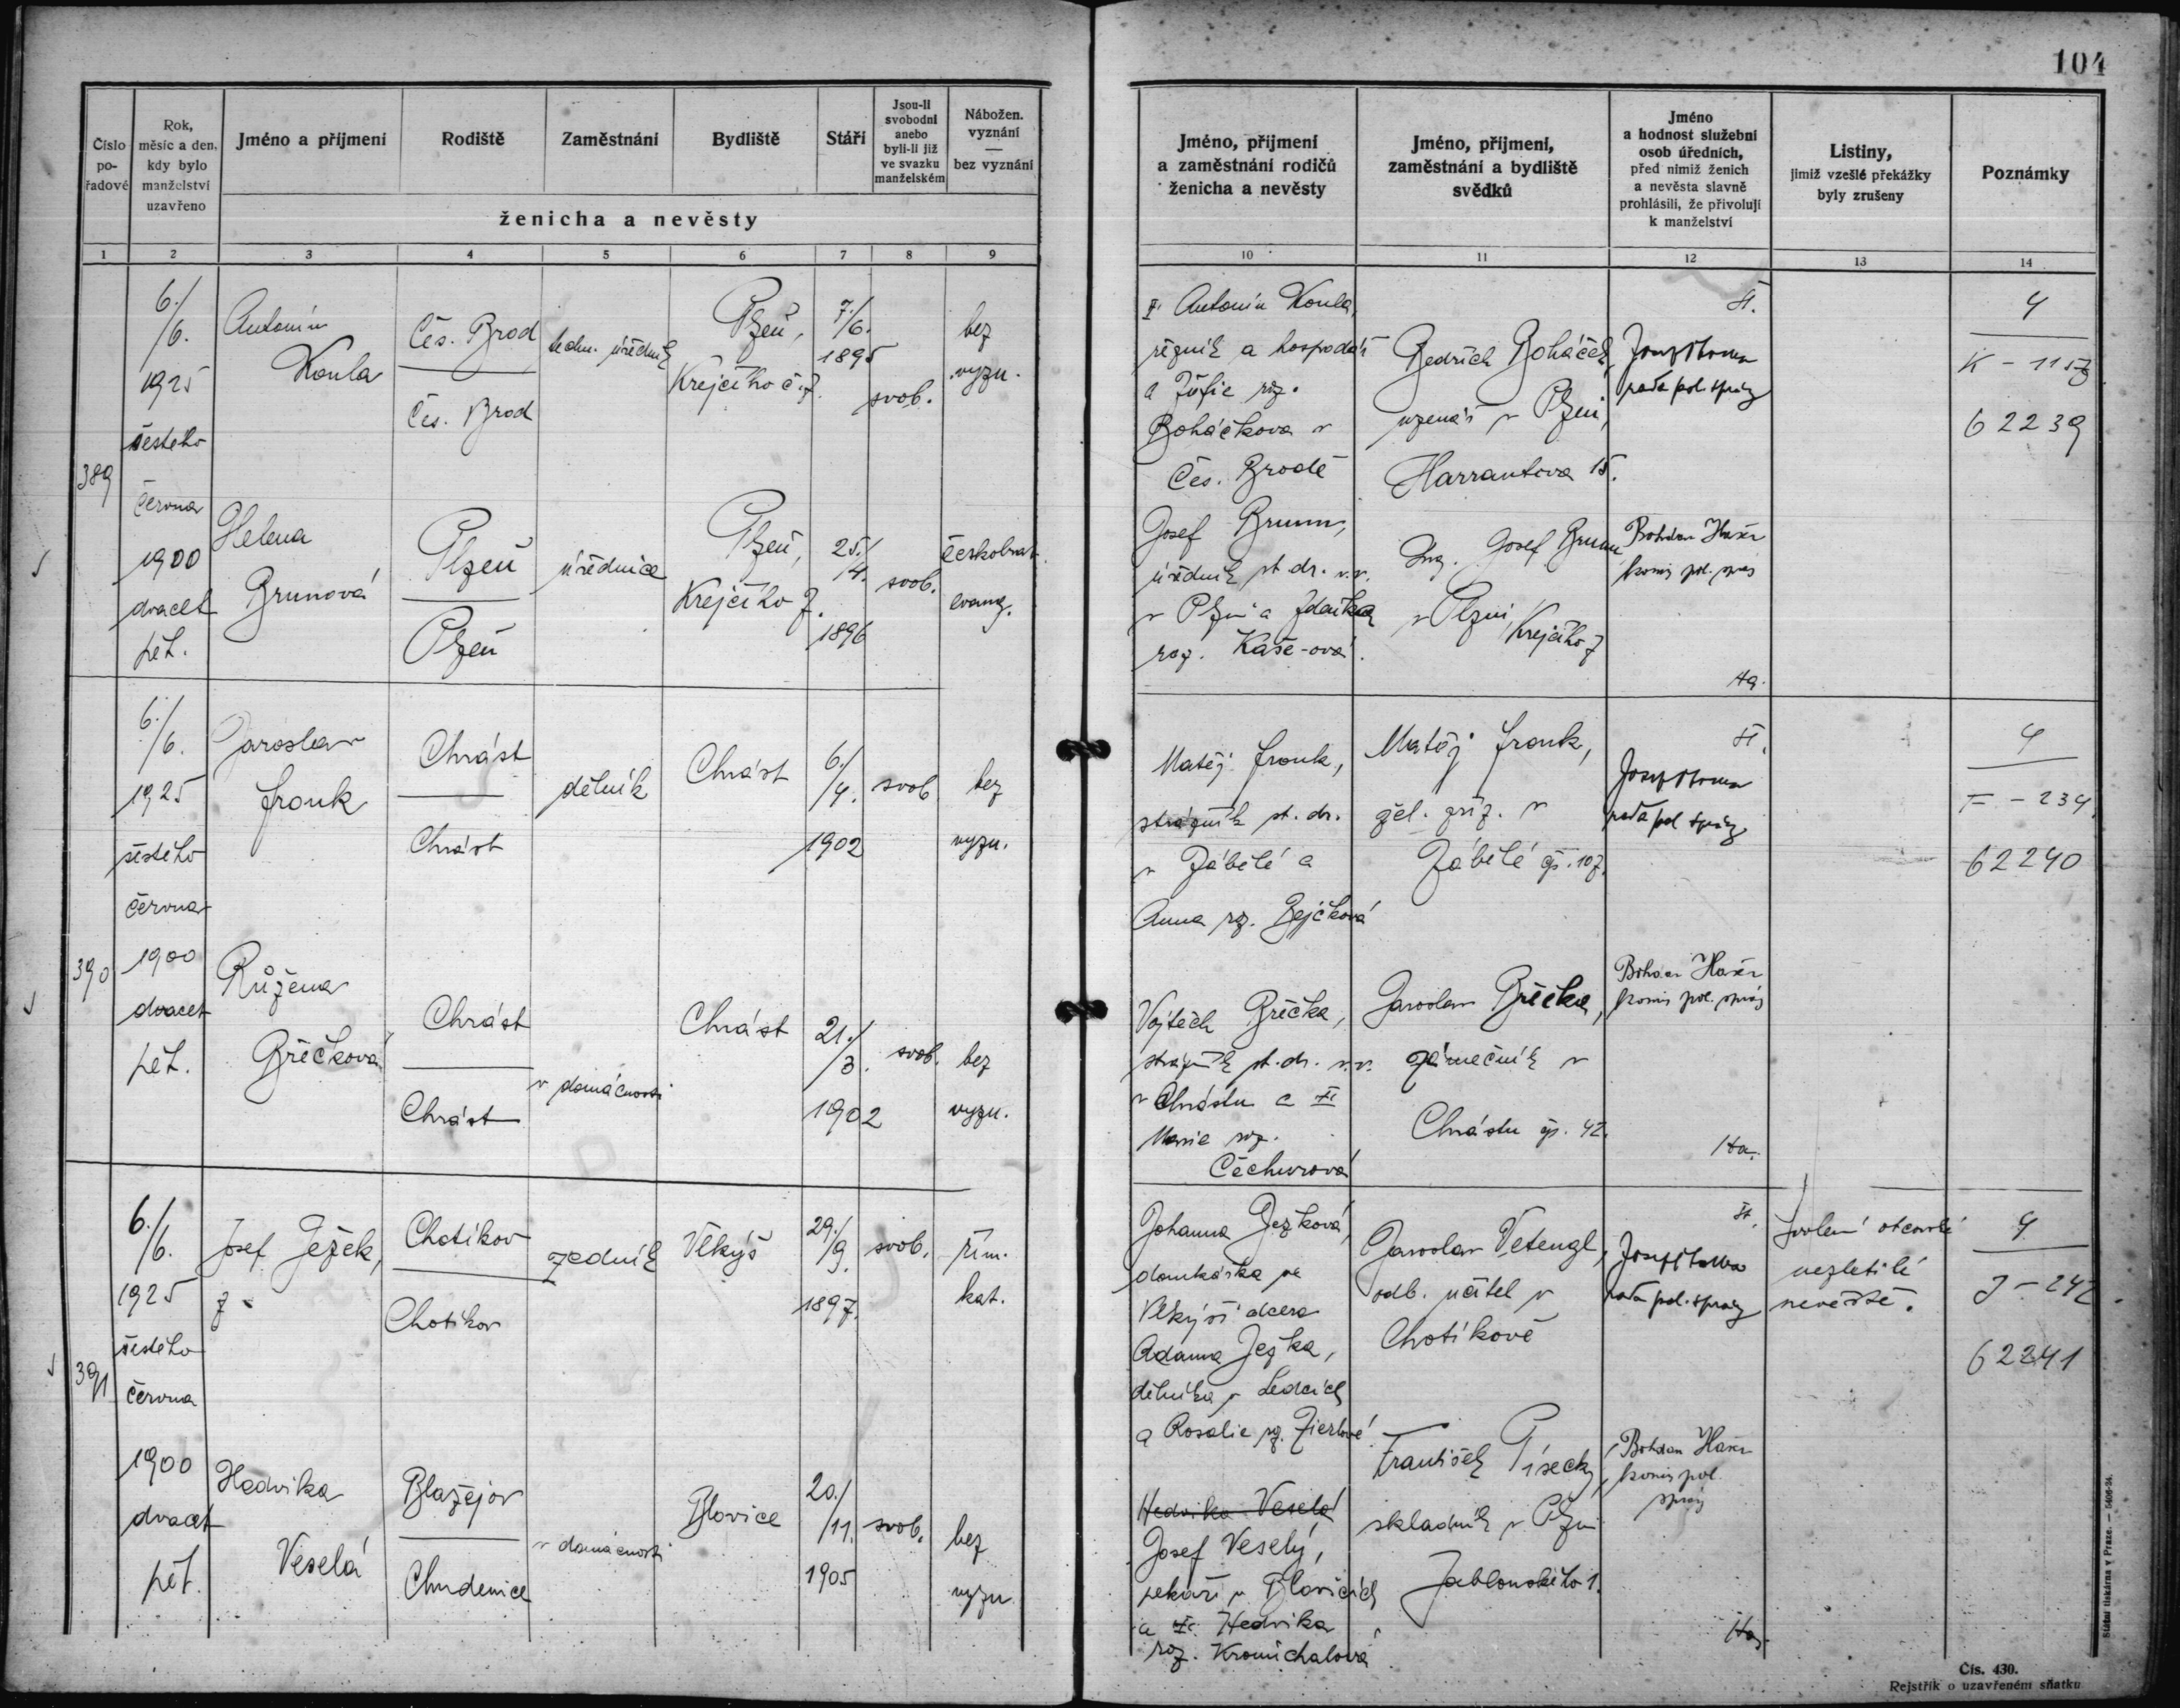 104
Číslo
po-
řadové
Rok,
měsíc a den,
kdy bylo
manželství
uzavřeno
Jméno a příjmení
Rodiště
Zaměstnání
Bydliště
Stáří
Jsou-li
svobodni
anebo
byli-li již
ve svazku
manželském
Nábožen.
vyznání
—
bez vyznání
ženicha a nevěsty
Jméno, příjmení
a zaměstnání rodičů
ženicha a nevěsty
Jméno, příjmení,
zaměstnání a bydliště
svědků
Jméno
a hodnost služební
osob úředních,
před nimiž ženich
a nevěsta slavně
prohlásili, že přivolují
k manželství
Listiny,
jimiž vzešlé překážky
byly zrušeny
Poznámky
1 2 3 4 5 6 7 8 9
10 11 12 13 14
389
6./
/6.
1925
šestého
června
1900
dvacet
pět.
Antonín
Koula
Čes. Brod
Čes. Brod
techn. úředník
Plzeň,
Krejčího č. 7.
7./
/6.
1895
svob.
bez
vyzn.
Antonín Koula,
řezník a hospodář
a Žofie roz.
Boháčkova v
Čes. Brodě
Bedřich Boháček,
uzenář v Plzni,
Harrantova 15.
Št.
rada pol. správy
4
K - 1157
62239
Helena
Brunová
Plzeň
Plzeň
úřednice
Plzeň,
Krejčího 7.
25./
/4.
1896
svob.
českobrat.
evang.
Josef Brunn,
úředník st. dr. v.v.
v Plzni a Zdeňka
roz. Kaše-ová.
Ing. Josef Brunn
v Plzni, Krejčího 7
Bohdan
komis. pol. správ
Ha.
390
6./
/6.
1925
šestého
června
1900
dvacet
pět.
Jaroslav
Fronk
Chrást
Chrást
dělník
Chrást
6./
/4.
1902
svob.
bez
vyzn.
Matěj Fronk,
strážník st. dr.
v Zábělé a
Anna roz. Bejčková
Matěj Fronk,
žel. zříz. v
Zábělé čp. 107.
Št.
rada pol. správy
4
F - 234.
62240
Růžena
Bříčková
Chrást
Chrást
v domácnosti
Chrást
21./
/3.
1902
svob.
bez
vyzn.
Vojtěch Bříčka,
strážník st. dr. v.v.
v Chrástu a
Marie roz.
Čechurová
Jaroslav Bříčka,
zámečník v
Chrástu čp. 42.
Bohdan
komis. pol. správ
Ha.
391
6./
/6.
1925
šestého
června
1900
dvacet
pět.
Josef Ježek,
Chotíkov
Chotíkov
zedník
Vlkýš
29./
/9.
1897.
svob.
řím.
kat.
Johanna Ježková,
domkářka ve
Vlkýši dcera
Adama Ježka,
dělníka v Ledcích
a Rosalie roz.
Jaroslav Vetengl,
odb. učitel v
Chotíkově
Št.
rada pol. správy
Svolení otcovské
nezletilé
nevěstě.
4
J - 242
62241
Hedvika
Veselá
Blažejov
Chudenice
v domácnosti
Blovice
20./
/11.
1905
svob.
bez
vyzn.
Hedvika Veselá
Josef Veselý,
pekař v Blovicích
a Hedvika
roz. Kromichalová
František Písecký,
skladník v Plzni
Jablonského 1.
Bohdan
komis. pol.
správ
Ha.
Státní tiskárna v Praze. — 5406-24.
Čís. 430.
Rejstřík o uzavřeném sňatku